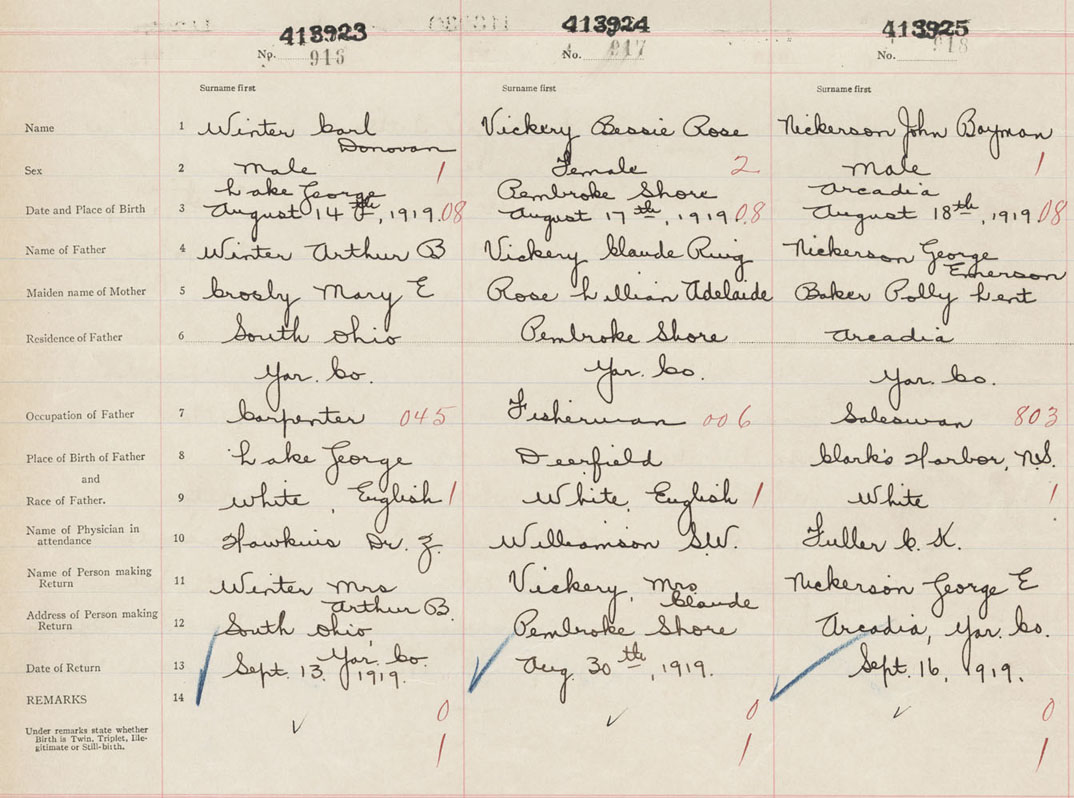 413923 413924 413925
No. 916 No. 917 No. 918
Surname first Surname first Surname first
Name 1 Winter Carl Donovan Vickery Bessie Rose Nickerson John Bayman
Sex 2 Male 1 Female 2 Male 1
Lake George Pembroke Shore Arcadia
Date and Place of Birth 3 August 14th, 1919. 08 August 17th, 1919 08 August 18th, 1919 08
Name of Father 4 Winter Arthur B Vickery Claude Ring Nickerson George Emerson
Maiden name of Mother 5 Crosby Mary E Rose Lillian Adelaide Baker Polly Kent
Residence of Father 6 South Ohio Pembroke Shore Arcadia
Yar. Co. Yar. Co. Yar. Co.
Occupation of Father 7 Carpenter 045 Fisherman 006 Salesman 803
Place of Birth of Father 8 Lake George Deerfield Clark's Harbor, N.S.
and
Race of Father. 9 White, English 1 White, English 1 White 1
Name of Physician in
attendance 10 Hawkins Dr. Z. Williamson S.W. Fuller C. K.
Name of Person making
Return 11 Winter Mrs Arthur B. Vickery, Mrs Claude Nickerson George E
Address of Person making
Return 12 South Ohio, Yar. Co. Pembroke Shore Arcadia, Yar. Co.
Date of Return 13 Sept. 13. 1919. Aug. 30th, 1919. Sept. 16, 1919.
REMARKS 14 0 0 0
Under remarks state whether
Birth is Twin, Triplet, Ille-
gitimate or Still-birth. 1 1 1